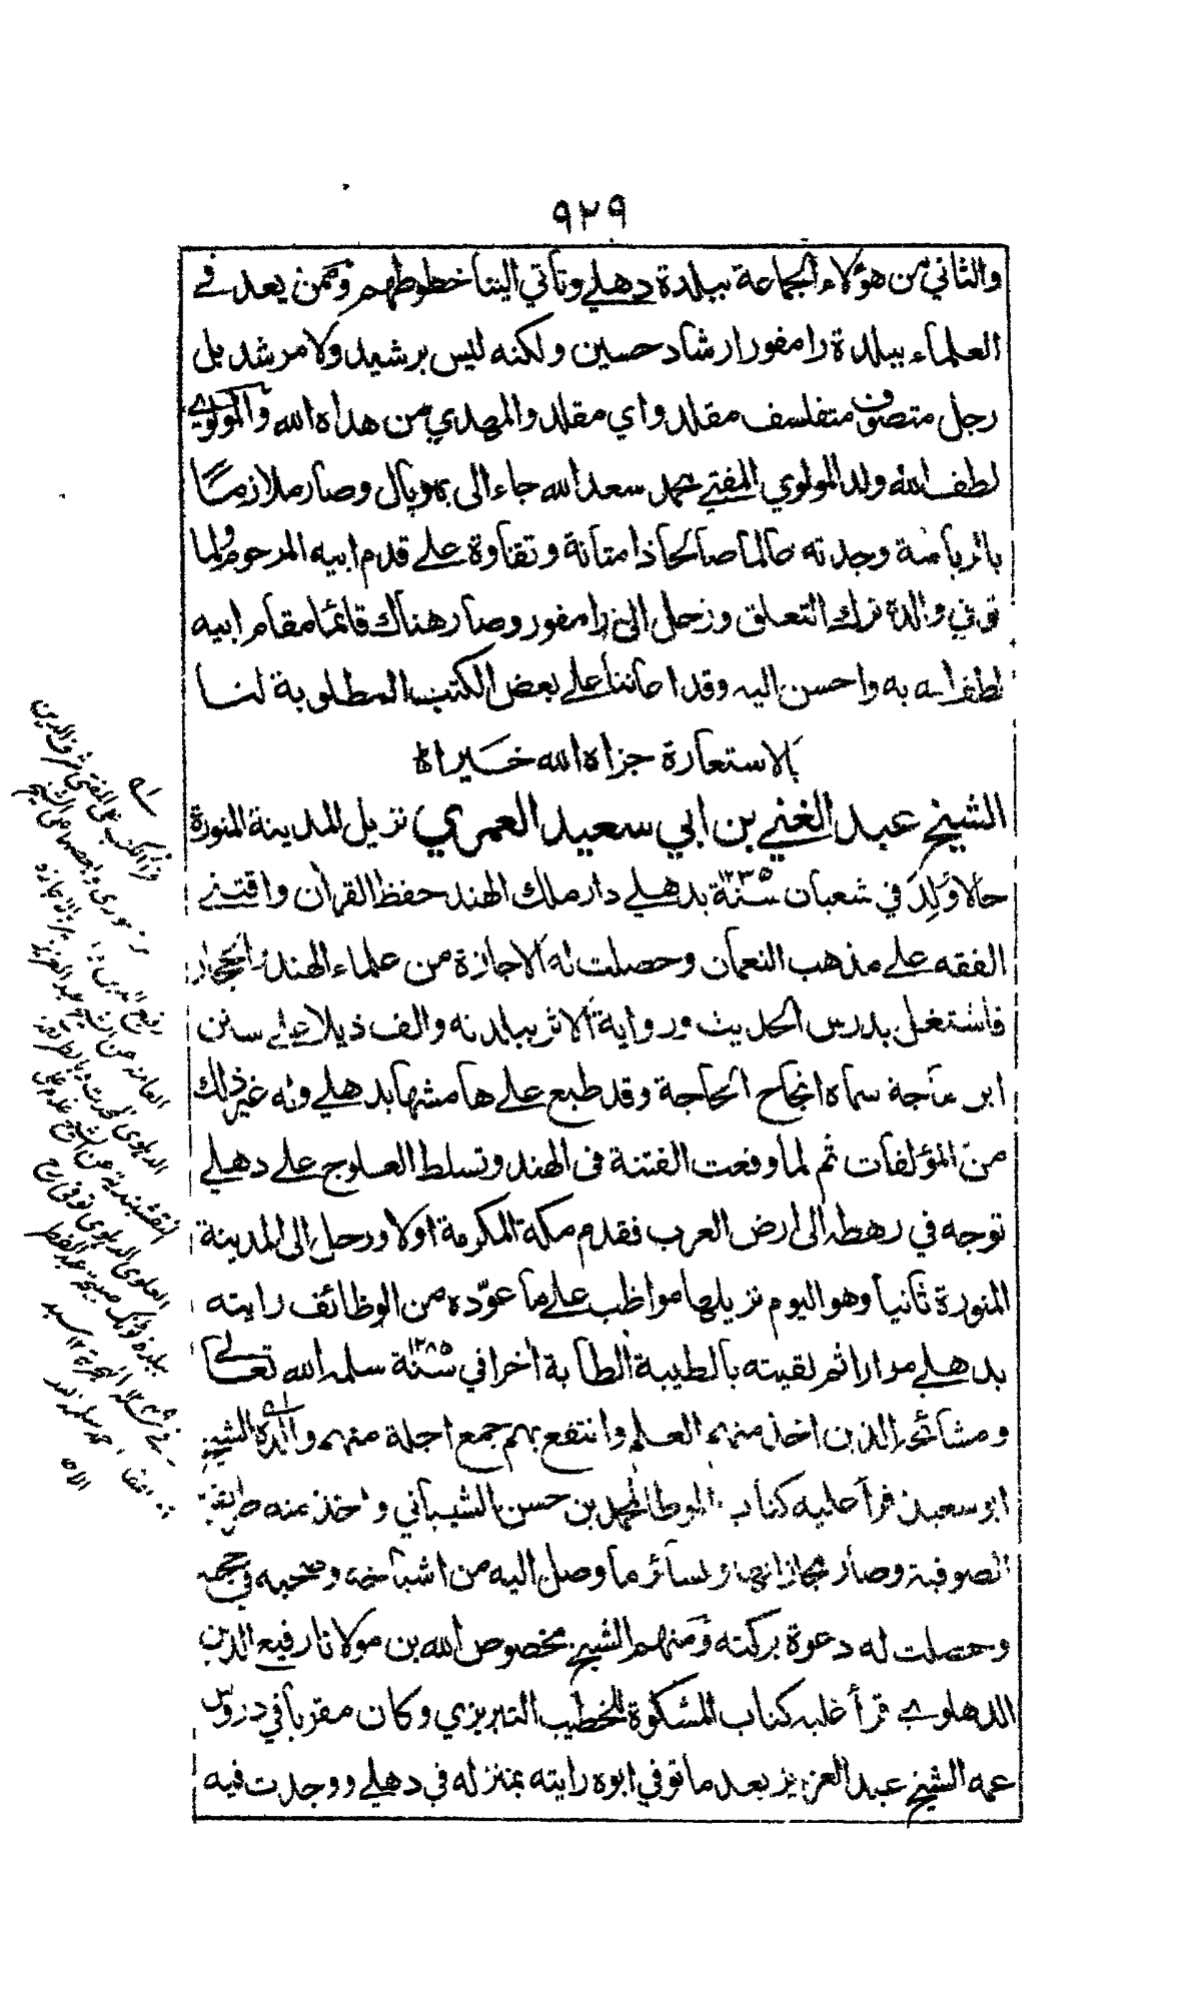 ٩٢٩
والثاني من هؤلاء الجماعة ببلدة دهلي وتأتي الينا خطوطهم وممن يعد في
العلماء ببلدة رامفور ارشاد حسين ولكنه ليس برشيد ولا مرشد بل
رجل متصوف متفلسف مقلد واي مقلد والمهدي من هداه الله والمولوي
لطف الله ولد المولوي المفتي محمد سعد الله جاء الى بهوپال وصار ملازما
بالرياسة وجدته عالما صالحا ذا متانة وتقاوة على قدم ابيه المرحوم ولما
توفي والده ترك التعلق ورحل الى رامفور وصار هناك قائما مقام ابيه
لطف الله به واحسن اليه وقد اعاننا على بعض الكتب المطلوبة لنا
بالاستعارة جزاه الله خيرا اه
الشيخ عبد الغني بن ابي سعيد العمري نزيل المدينة المنورة
حالا ولد في شعبان سنة ١٢٣٥ بدهلي دار ملك الهند حفظ القران واقتنى
الفقه على مذهب النعمان وحصلت له الاجازة من علماء الهند والحجاز
فاشتغل بدرس الحديث ورواية الاثر ببلدته والف ذيلا على سنن
ابن ماجة سماه انجاح الحاجة وقد طبع على هامشها بدهلي وله غير ذلك
من المؤلفات ثم لما وقعت الفتنة في الهند وتسلط العلوج على دهلي
توجه في رهطه الى ارض العرب فقدم مكة المكرمة اولا ورحل الى المدينة
المنورة ثانيا وهو اليوم نزيلها مواظب على ما عوّده من الوظائف رايته
بدهلي مرارا ثم لقيته بالطيبة الطابة اخرا في سنة ١٢٨٥ سلمه الله تعالى
ومشائخه الذين اخذ منهم العلم وانتفع بهم جمع اجلة منهم والده الشيخ
ابو سعيد قرأ عليه كتاب الموطا لمحمد بن حسن الشيباني واخذ عنه طريقة
الصوفية وصار مجازا بها ولسائر ما وصل اليه من اشياخه وصحبه في حجه
وحصلت له دعوة بركته ومنهم الشيخ مخصوص الله بن مولانا رفيع الدين
الدهلوي قرأ عليه كتاب المشكوة للخطيب التبريزي وكان مقربا في دروس
عمه الشيخ عبد العزيز بعد ما توفي ابوه رايته بمنزله في دهلي ووجدت فيه